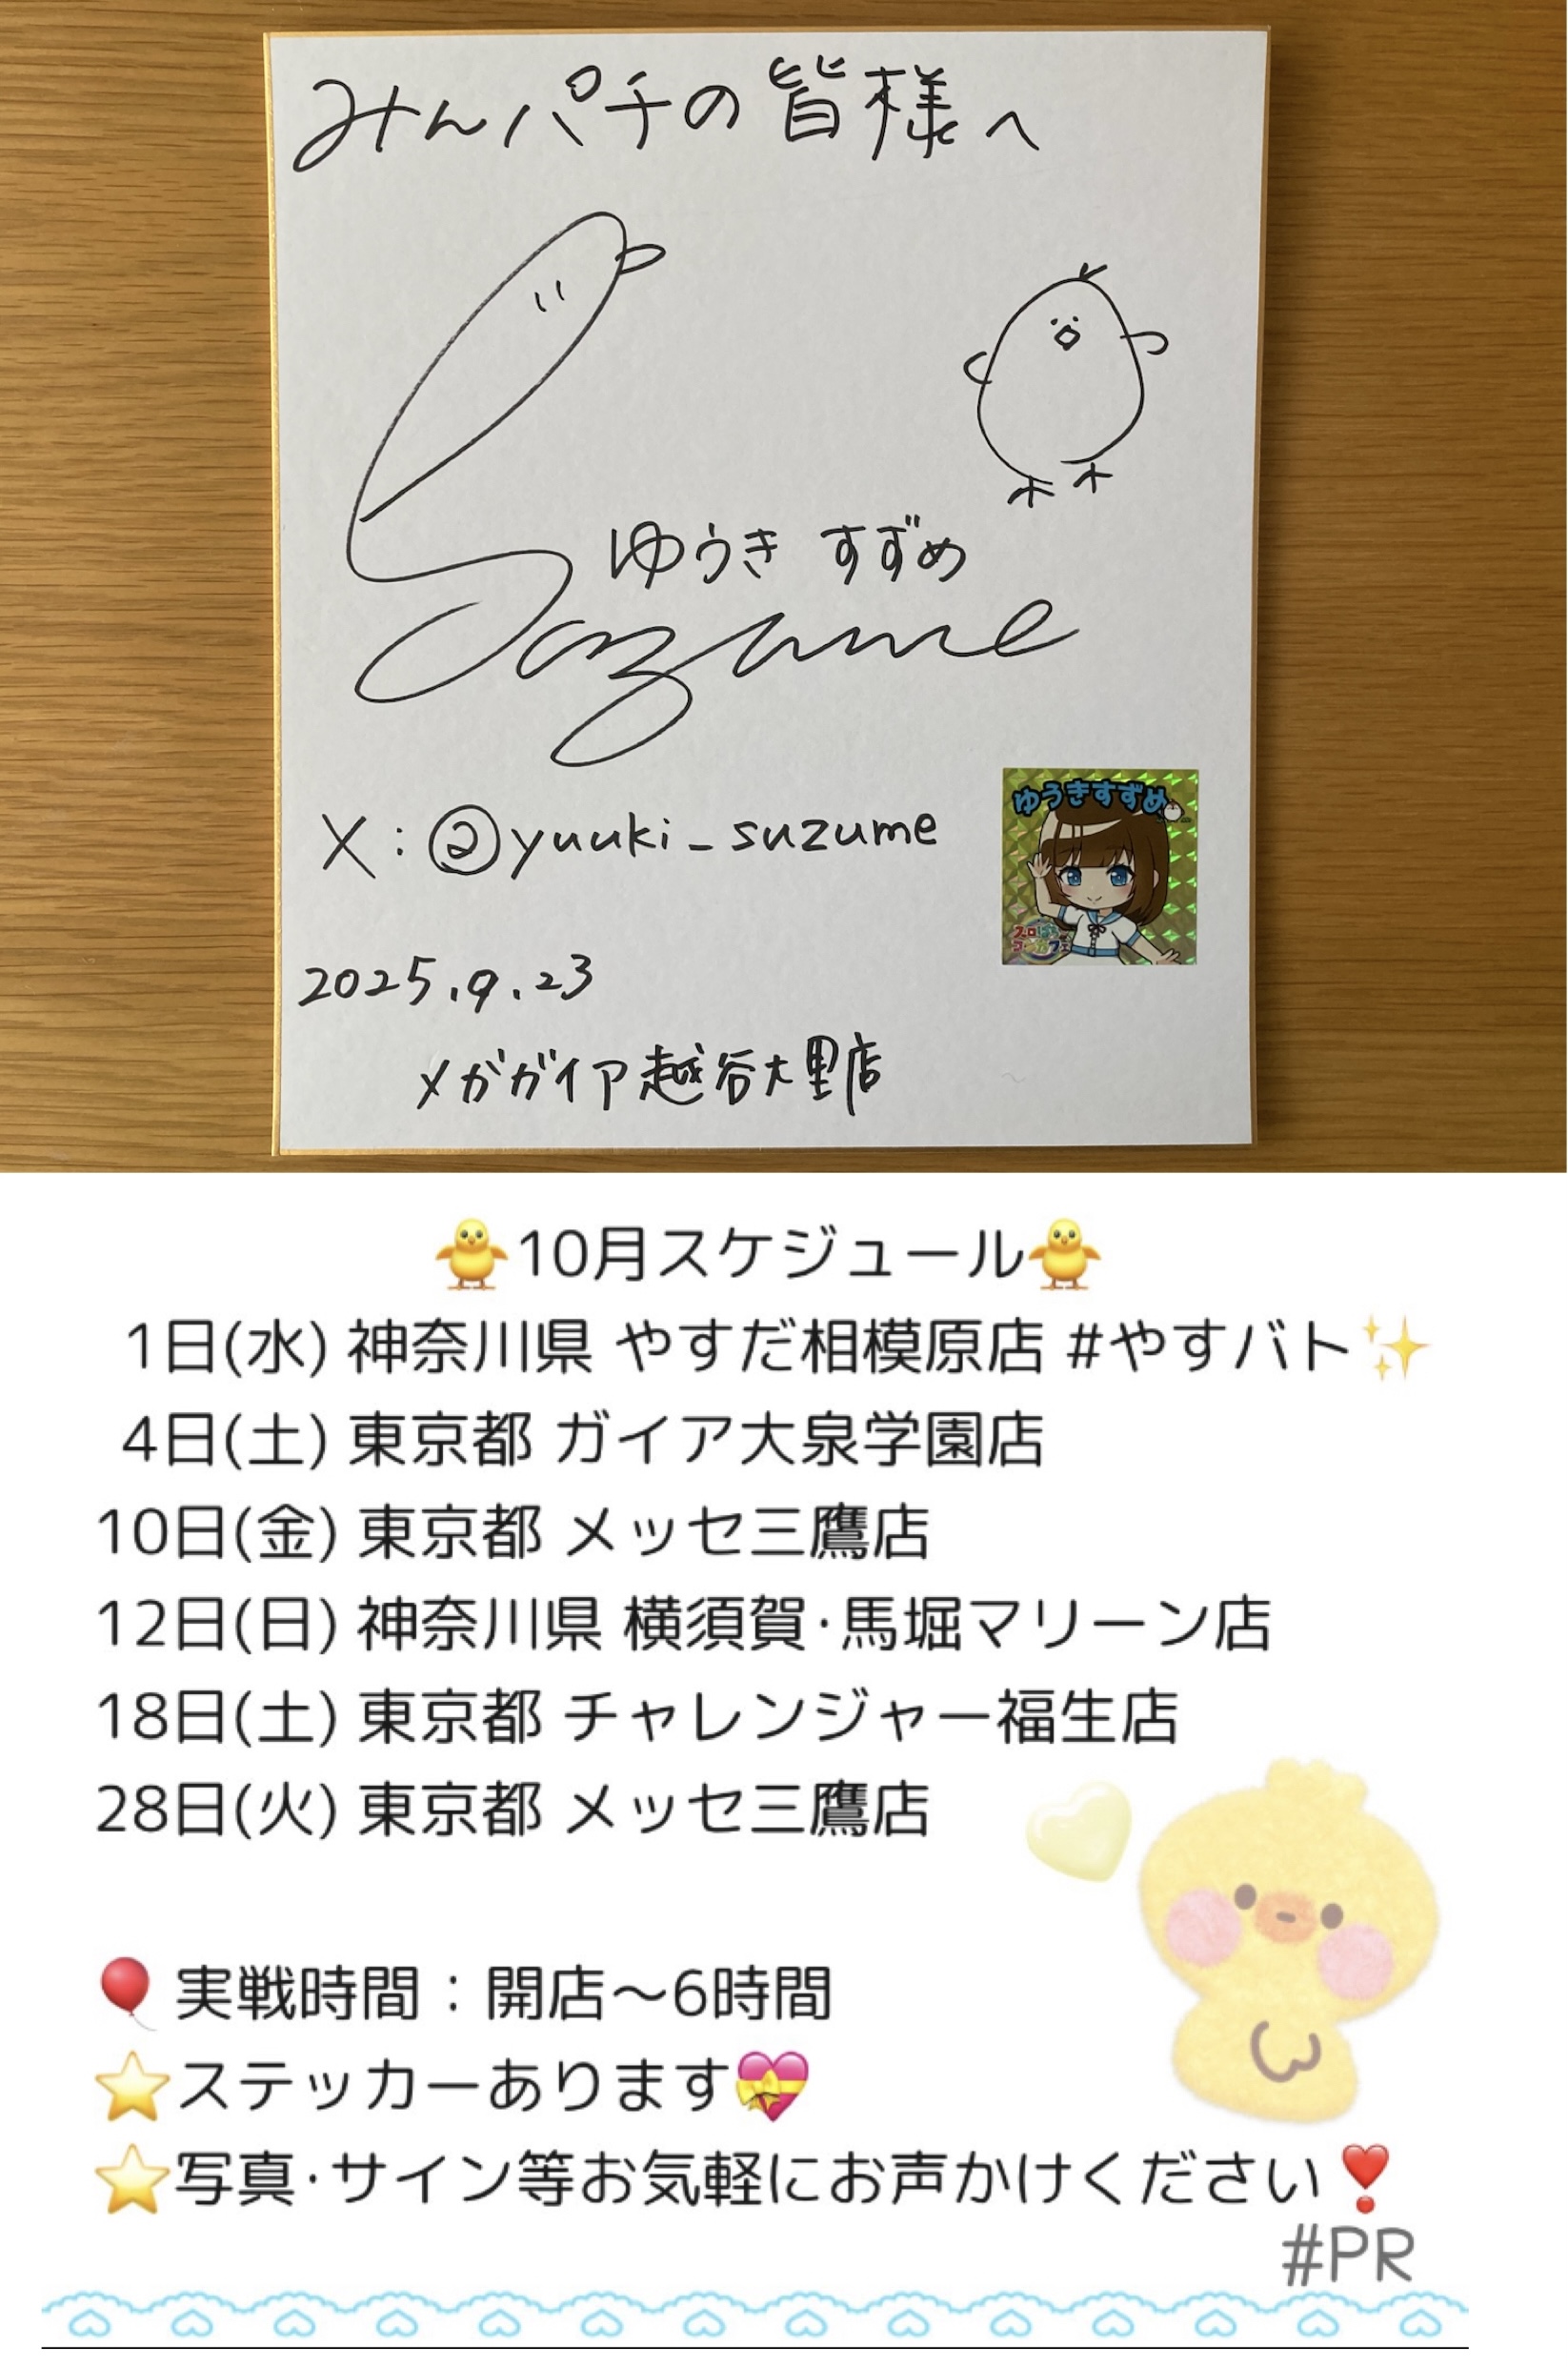 みんパチの皆様へ
ゆうき すずめ
Suzume
X:@yuuki_suzume
ゆうきすずめ
2025.9.23
メガガイア越谷大里店
🐥10月スケジュール🐥
1日(水) 神奈川県 やすだ相模原店 #やすバト✨
4日(土) 東京都 ガイア大泉学園店
10日(金) 東京都 メッセ三鷹店
12日(日) 神奈川県 横須賀・馬堀マリーン店
18日(土) 東京都 チャレンジャー福生店
28日(火) 東京都 メッセ三鷹店
🎈実戦時間：開店〜6時間
⭐ステッカーあります💝
⭐写真・サイン等お気軽にお声かけください❣
#PR